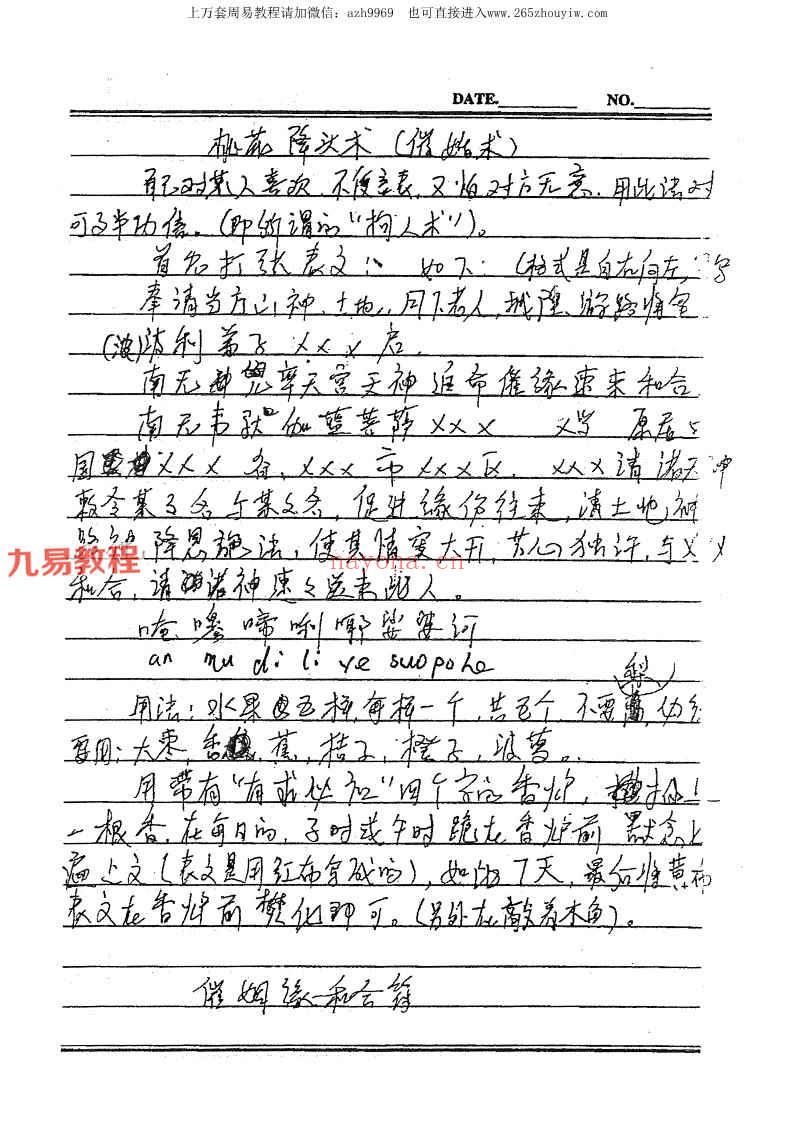 上万套周易教程请加微信：azh9969 也可直接进入www.265zhouyiw.com
DATE. NO.
桃花降头术（催婚术）
自己对某人喜欢，不便言表，又怕对方无意，用此法对
可事半功倍。（即所谓的“拘人术”）。
首先打张表文： 如下：（格式是自右向左，字
奉请当方山神、土地、月下老人，城隍、游路将军
弟子 XXX 启，
南无 兜率天宫天神 催缘速来和合
南无韦驮 伽蓝菩萨 XXX 原居
国 XXX省，XXX市XXX区， XXX请诸天神
敕令某子名与某女名，促进缘份往来，请土地神
降恩施法，使其情窦大开，芳心独许，与XX
和合，请 诸神速之送来此人。
唵 嚕啼唎耶娑婆诃
an mu di li ye suopohe
梨
用法：水果 五样，每样一个，共五个，不要 ，
要用：大枣，香 蕉，桔子，橙子，菠萝。
用带有“有求必应”四个字的香炉，
一根香，在每日的，子时或午时跪在香炉前 默念上
遍上文（表文是用红布写成的），如此7天，最后将黄布
表文在香炉前焚化即可。（另外在敲着木鱼）。
催姻缘和合符
九易教程
nayona.cn